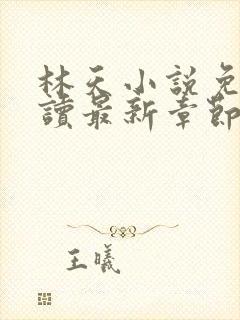 林天小說免
讀最新章節
王曦